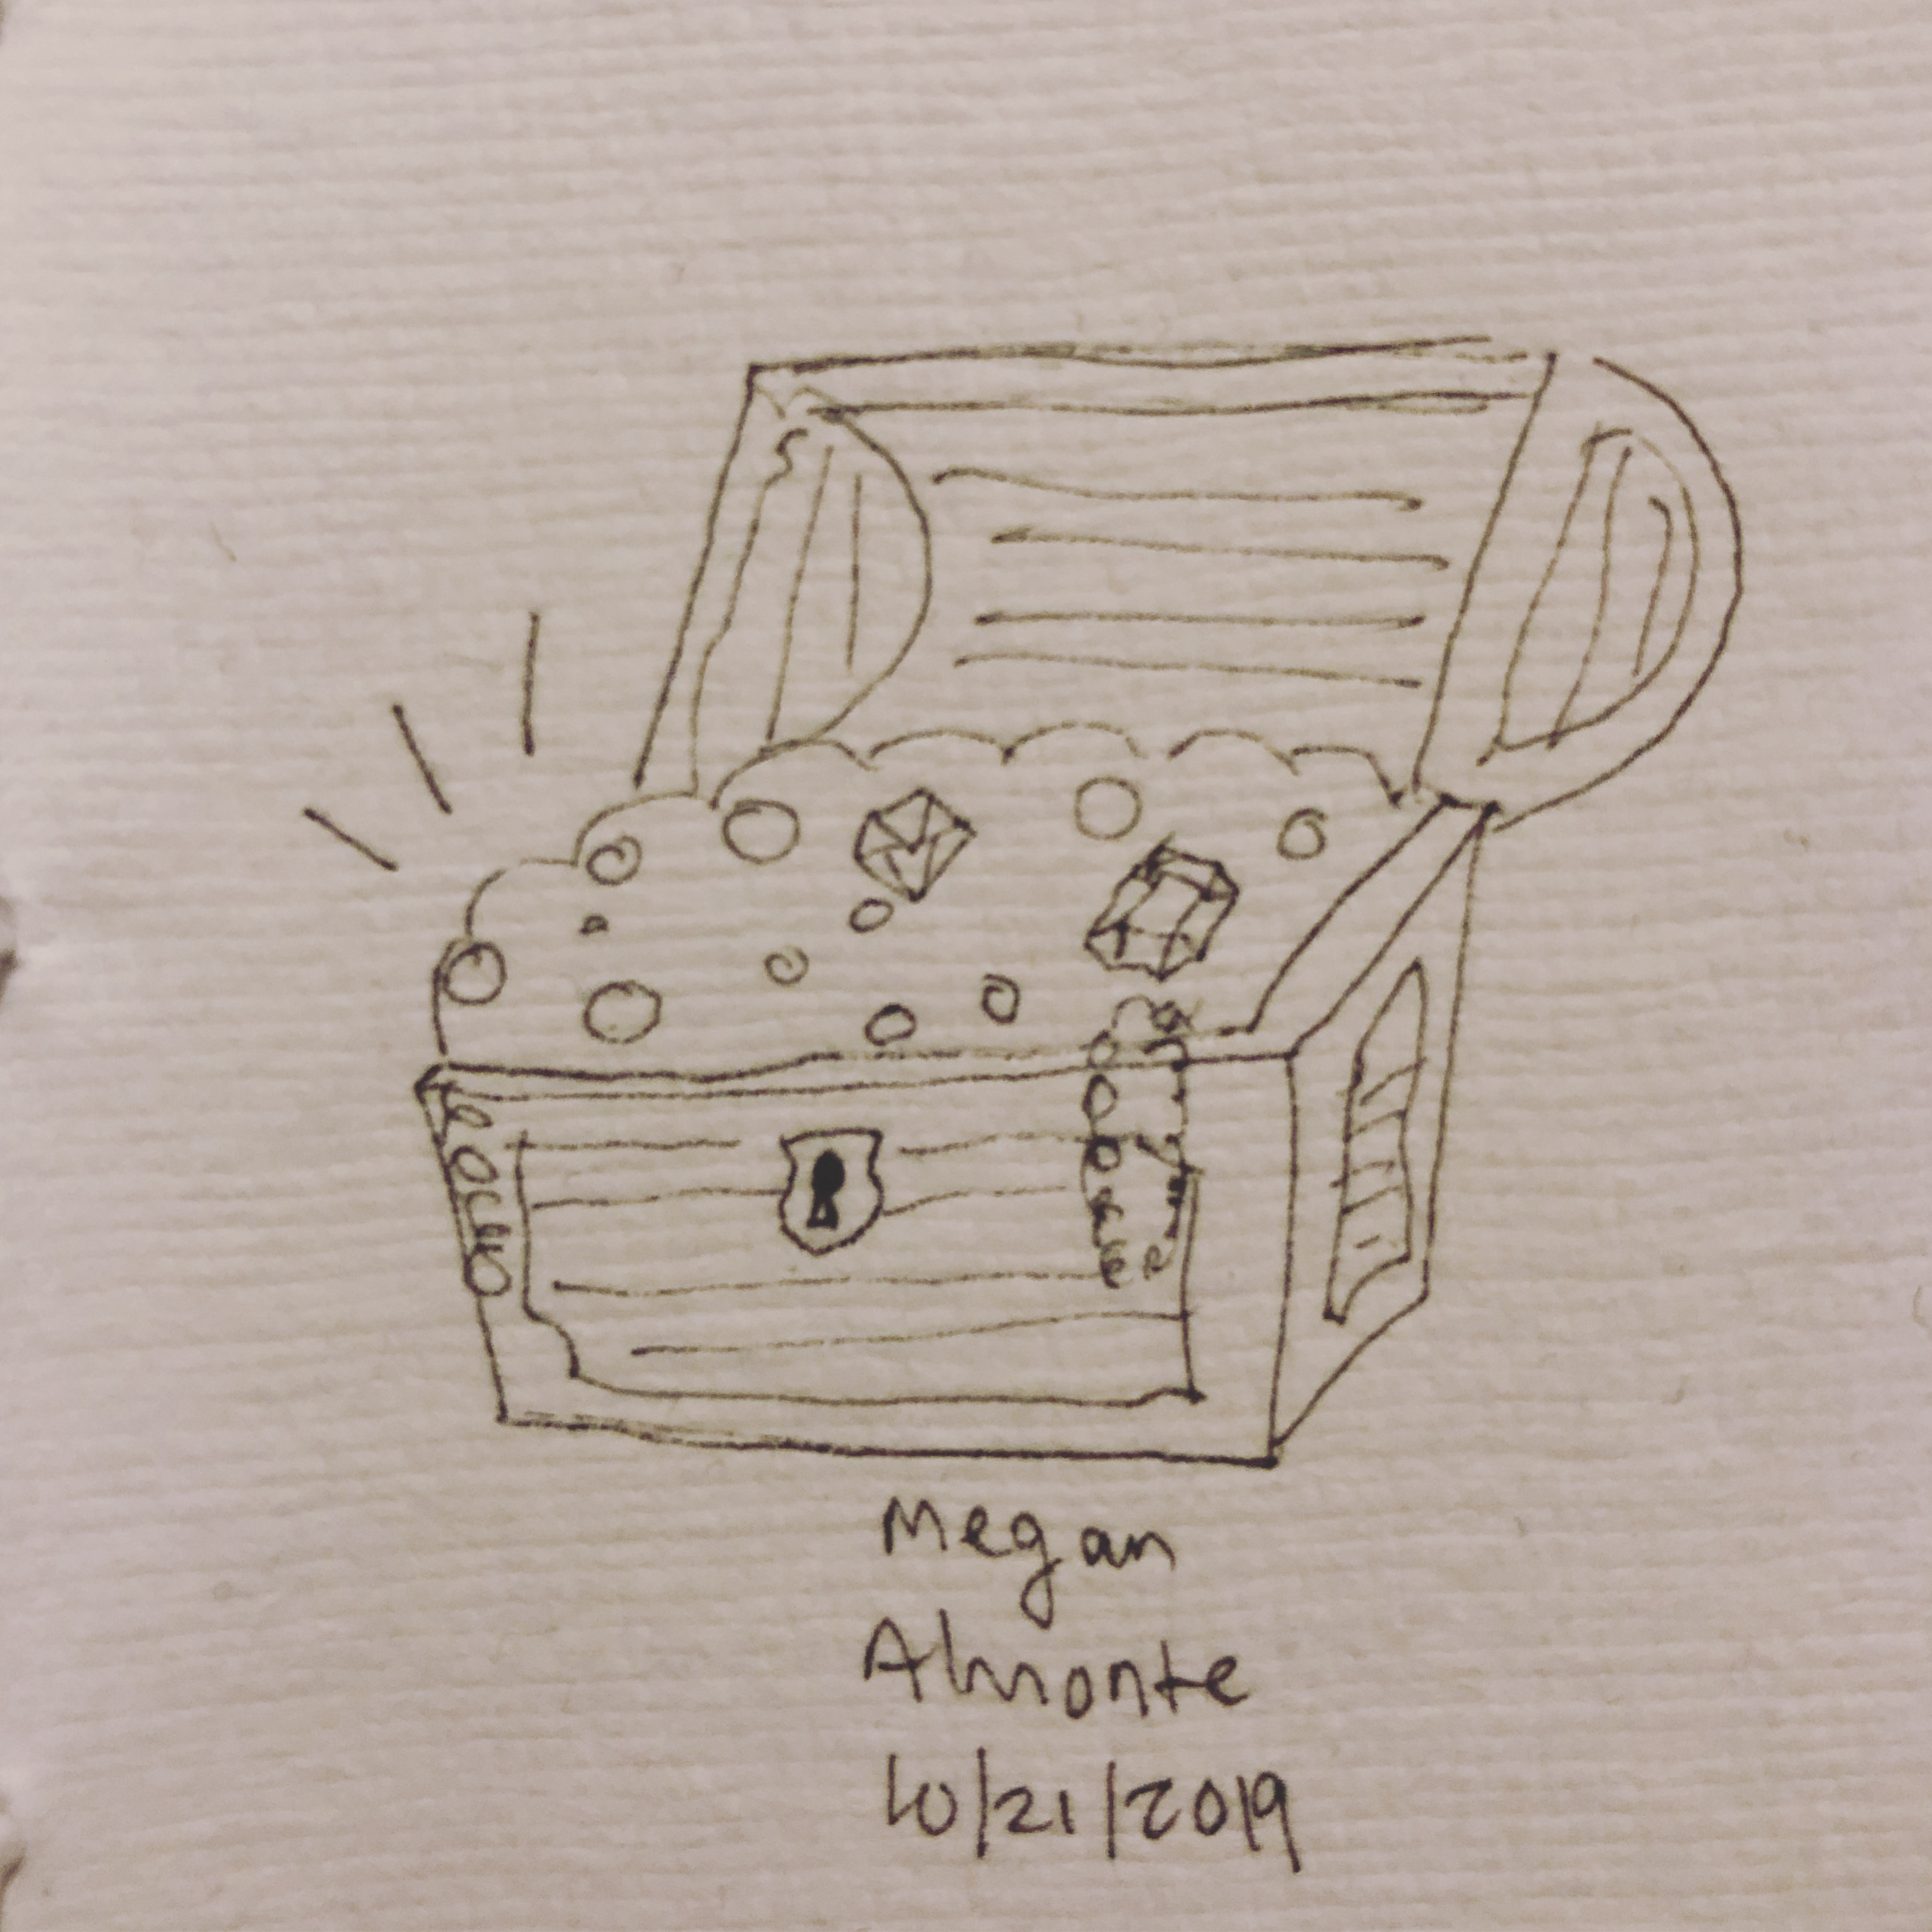 Megan
Almonte
10/21/2019